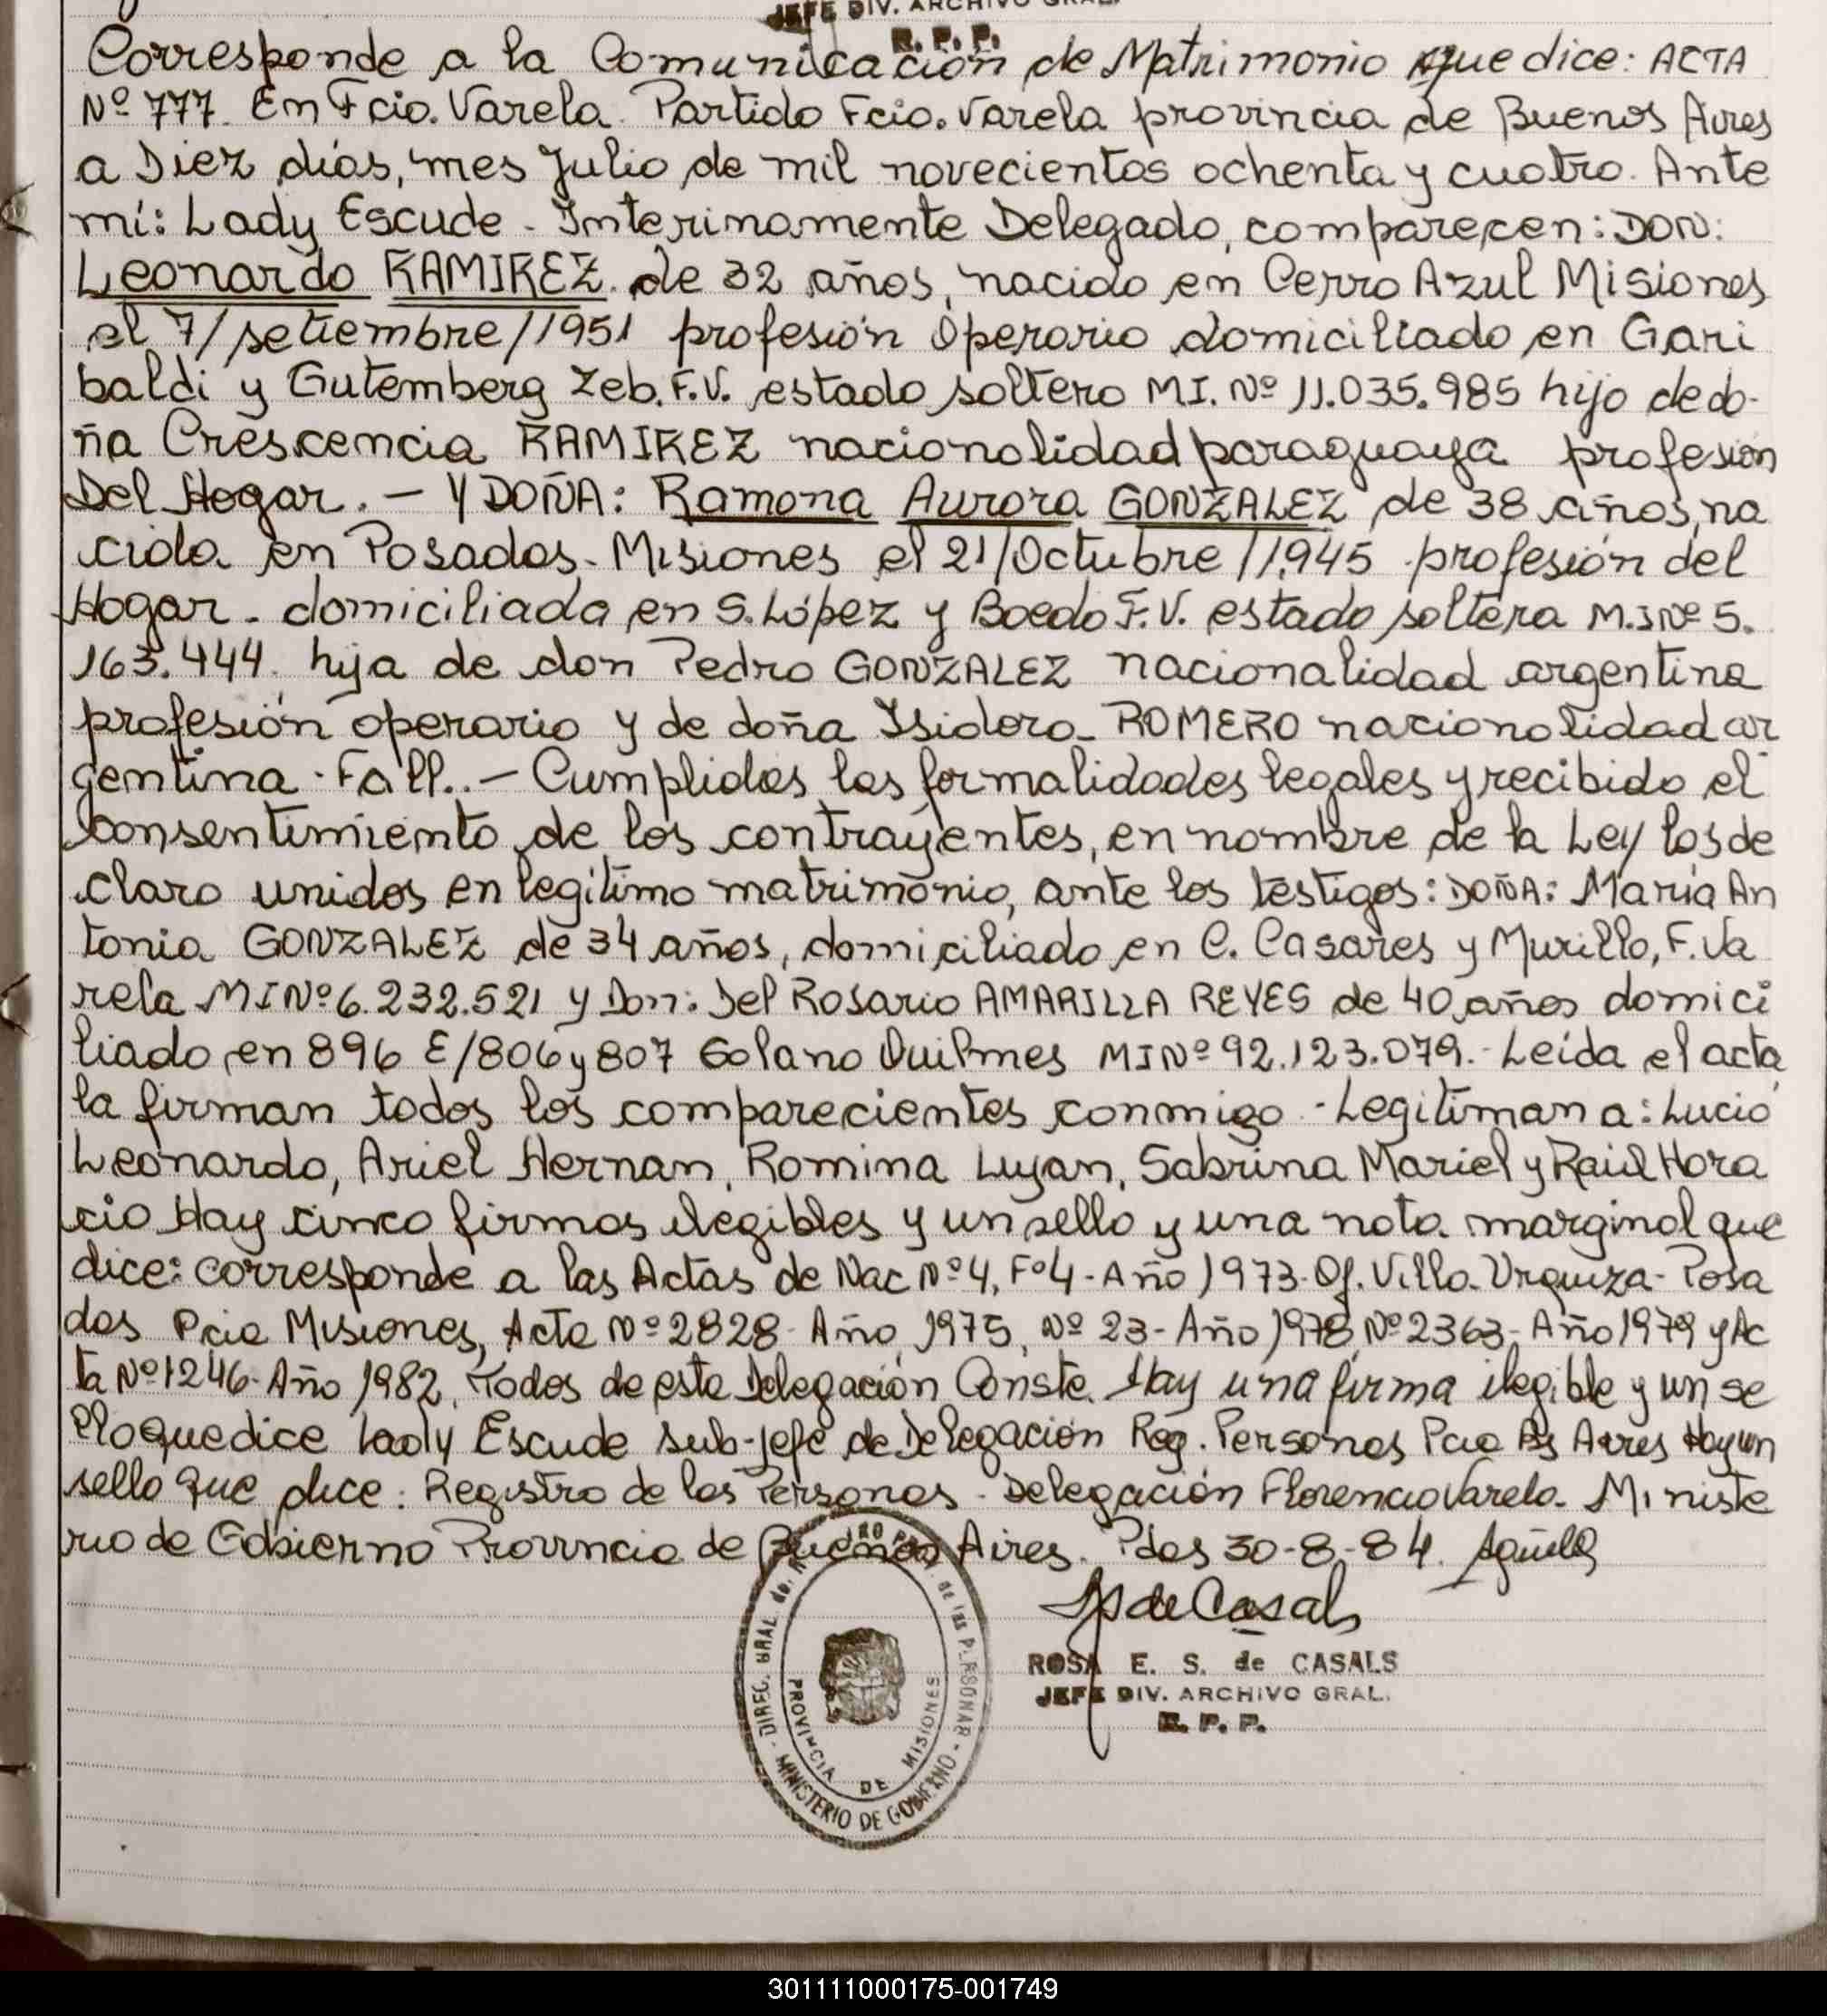 JEFE DIV. ARCHIVO GRAL.
R. P. P.
Corresponde a la Comunicación de Matrimonio que dice: ACTA
Nº 777. En Fcio. Varela. Partido Fcio. Varela provincia de Buenos Aires
a Diez días, mes Julio de mil novecientos ochenta y cuatro. Ante
mí: Lady Escude - Interinamente Delegado, comparecen: DON:
Leonardo RAMIREZ de 32 años, nacido en Cerro Azul Misiones
el 7/setiembre/1951 profesión Operario domiciliado en Gari
baldi y Gutemberg Zeb. F.V. estado soltero MI. Nº 11.035.985 hijo de do-
ña Crescencia RAMIREZ nacionalidad paraguaya profesión
Del Hogar. - Y DOÑA: Ramona Aurora GONZALEZ de 38 años, na
cida en Posadas - Misiones el 21/Octubre/1.945 profesión del
Hogar - domiciliada en S. López y Boedo F.V. estado soltera M.I Nº 5.
163.444. hija de don Pedro GONZALEZ nacionalidad argentina
profesión operario y de doña Isidora ROMERO nacionalidad ar
gentina - Fall.. - Cumplidas las formalidades legales y recibido el
consentimiento de los contrayentes, en nombre de la Ley los de
claro unidos en legítimo matrimonio, ante los testigos: DOÑA: María An
tonia GONZALEZ de 34 años, domiciliado en C. Casares y Murillo, F. Va
rela MI Nº 6.232.521 y Don: Del Rosario AMARILLA REYES de 40 años domici
liado en 896 E/806 y 807 Solano Quilmes MI Nº 92.123.079.- Leída el acta
la firman todos los comparecientes conmigo - Legitiman a: Lucio
Leonardo, Ariel Hernan, Romina Lujan, Sabrina Mariel y Raúl Hora
cio Hay cinco firmas ilegibles y un sello y una nota marginal que
dice: corresponde a las Actas de Nac Nº 4, Fº 4 - Año 1973 - Of. Villa Urquiza - Posa
das Pcia Misiones, Acta Nº 2828 - Año 1975, Nº 23 - Año 1978, Nº 2363 - Año 1979 y Ac
ta Nº 1246 - Año 1982, Todos de esta Delegación Conste. Hay una firma ilegible y un se
llo que dice Lady Escude sub-jefe de Delegación Reg. Personas Pcia Bs Aires Hay un
sello que dice: Registro de las Personas - Delegación Florencio Varela - Ministe
rio de Gobierno Provincia de Buenos Aires. Pdas 30-8-84.
ROSA E. S. de CASALS
JEFE DIV. ARCHIVO GRAL.
R. P. P.
PROVINCIA DE MISIONES
MINISTERIO DE GOBIERNO
301111000175-001749